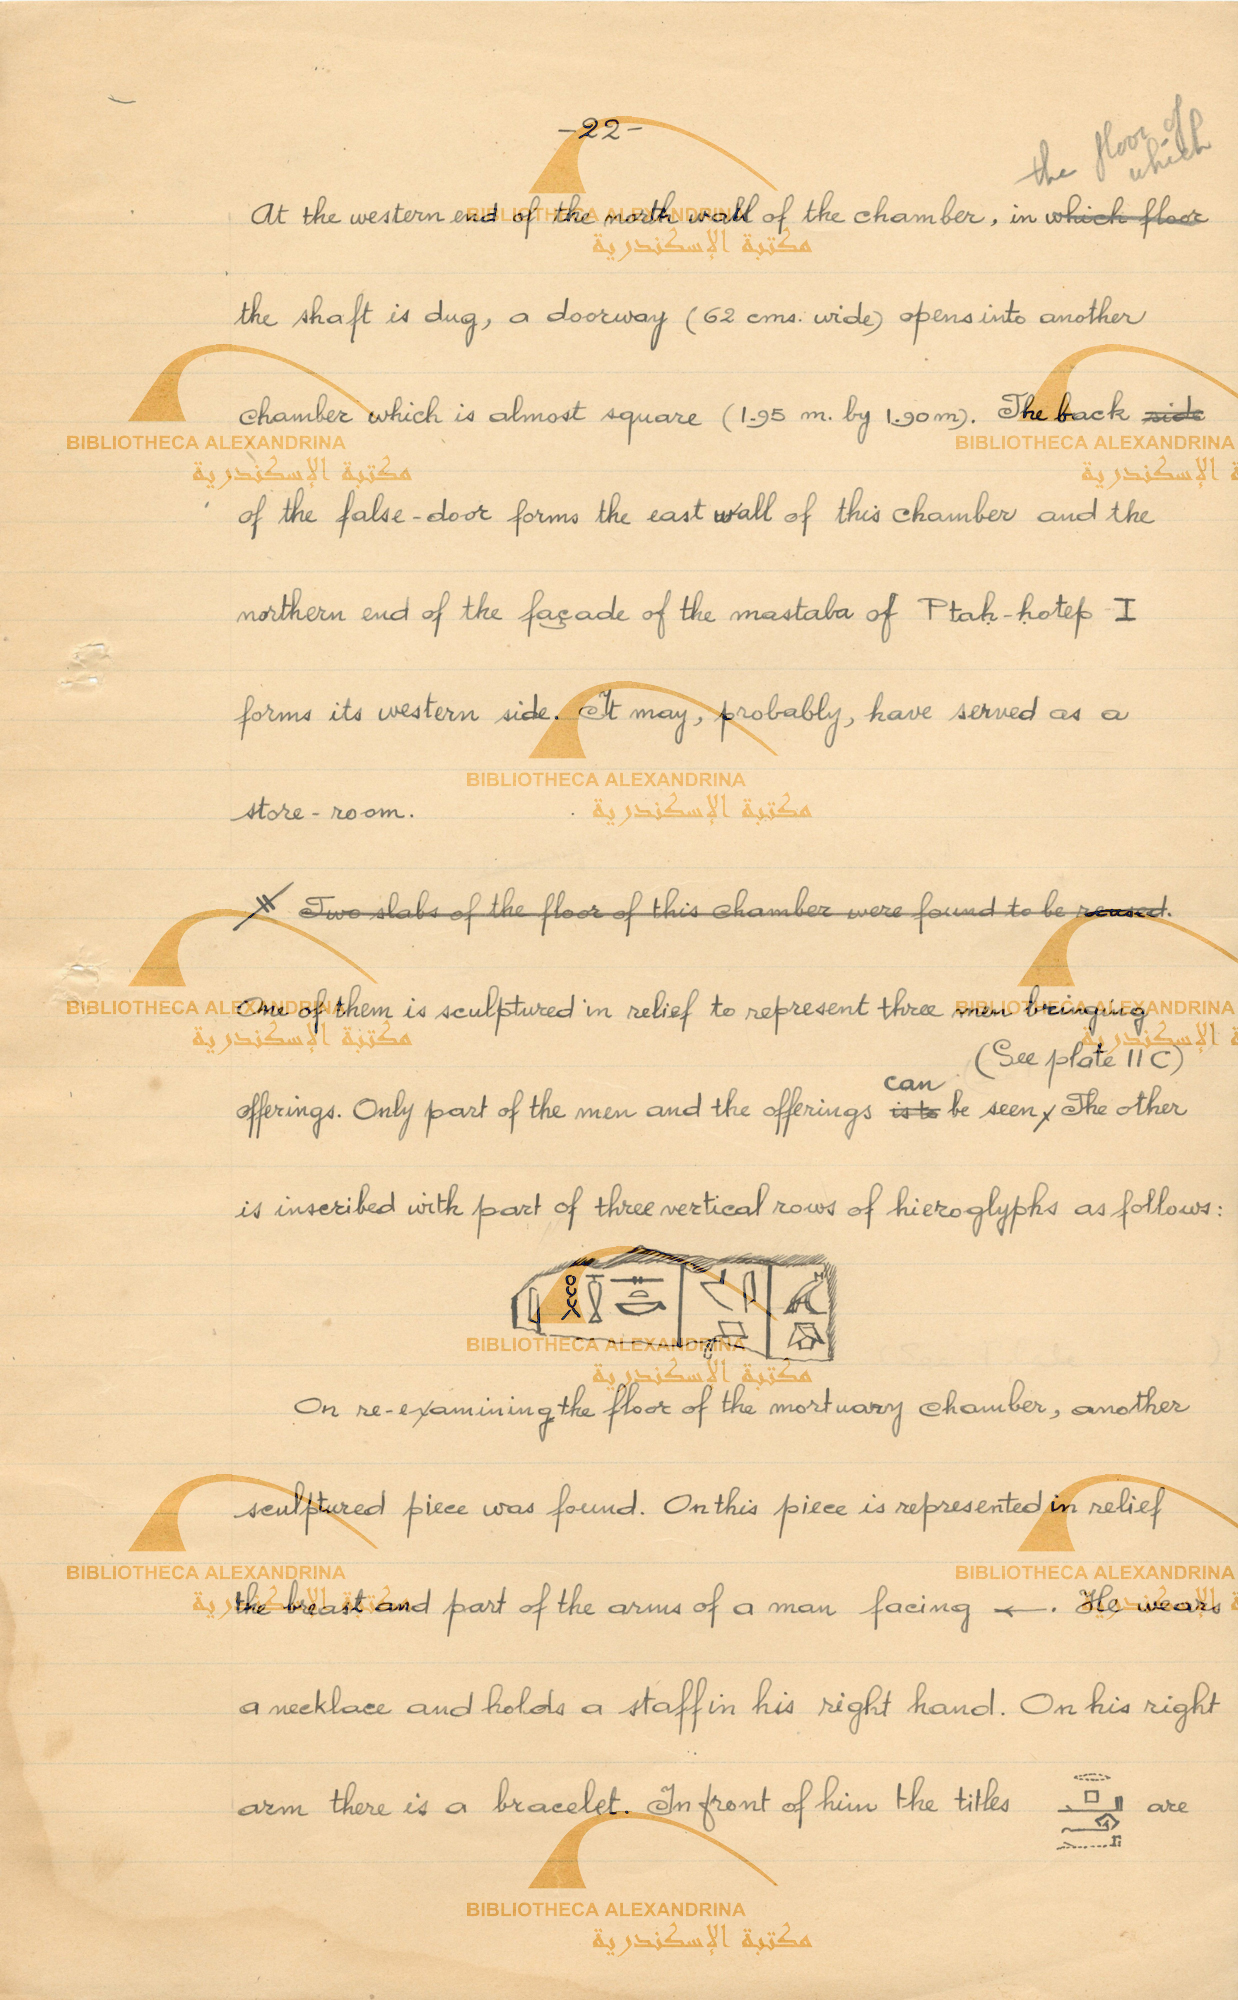 -22-
the floor of
which
At the western end of the north wall of the chamber, in which floor
the shaft is dug, a doorway (62 cms. wide) opens into another
chamber which is almost square (1.95 m. by 1.90 m). The back side
of the false-door forms the east wall of this chamber and the
northern end of the façade of the mastaba of Ptaḥ-ḥotep I
forms its western side. It may, probably, have served as a
store-room.
Two slabs of the floor of this chamber were found to be reused.
One of them is sculptured in relief to represent three men bringing
(See plate II C)
can
offerings. Only part of the men and the offerings is to be seen. The other
is inscribed with part of three vertical rows of hieroglyphs as follows:
On re-examining the floor of the mortuary chamber, another
sculptured piece was found. On this piece is represented in relief
the breast and part of the arms of a man facing ←. He wears
a necklace and holds a staff in his right hand. On his right
arm there is a bracelet. In front of him the titles are
BIBLIOTHECA ALEXANDRINA
مكتبة الإسكندرية
BIBLIOTHECA ALEXANDRINA
مكتبة الإسكندرية
BIBLIOTHECA ALEXANDRINA
مكتبة الإسكندرية
BIBLIOTHECA ALEXANDRINA
مكتبة الإسكندرية
BIBLIOTHECA ALEXANDRINA
مكتبة الإسكندرية
BIBLIOTHECA ALEXANDRINA
مكتبة الإسكندرية
BIBLIOTHECA ALEXANDRINA
مكتبة الإسكندرية
BIBLIOTHECA ALEXANDRINA
مكتبة الإسكندرية
BIBLIOTHECA ALEXANDRINA
مكتبة الإسكندرية
BIBLIOTHECA ALEXANDRINA
مكتبة الإسكندرية